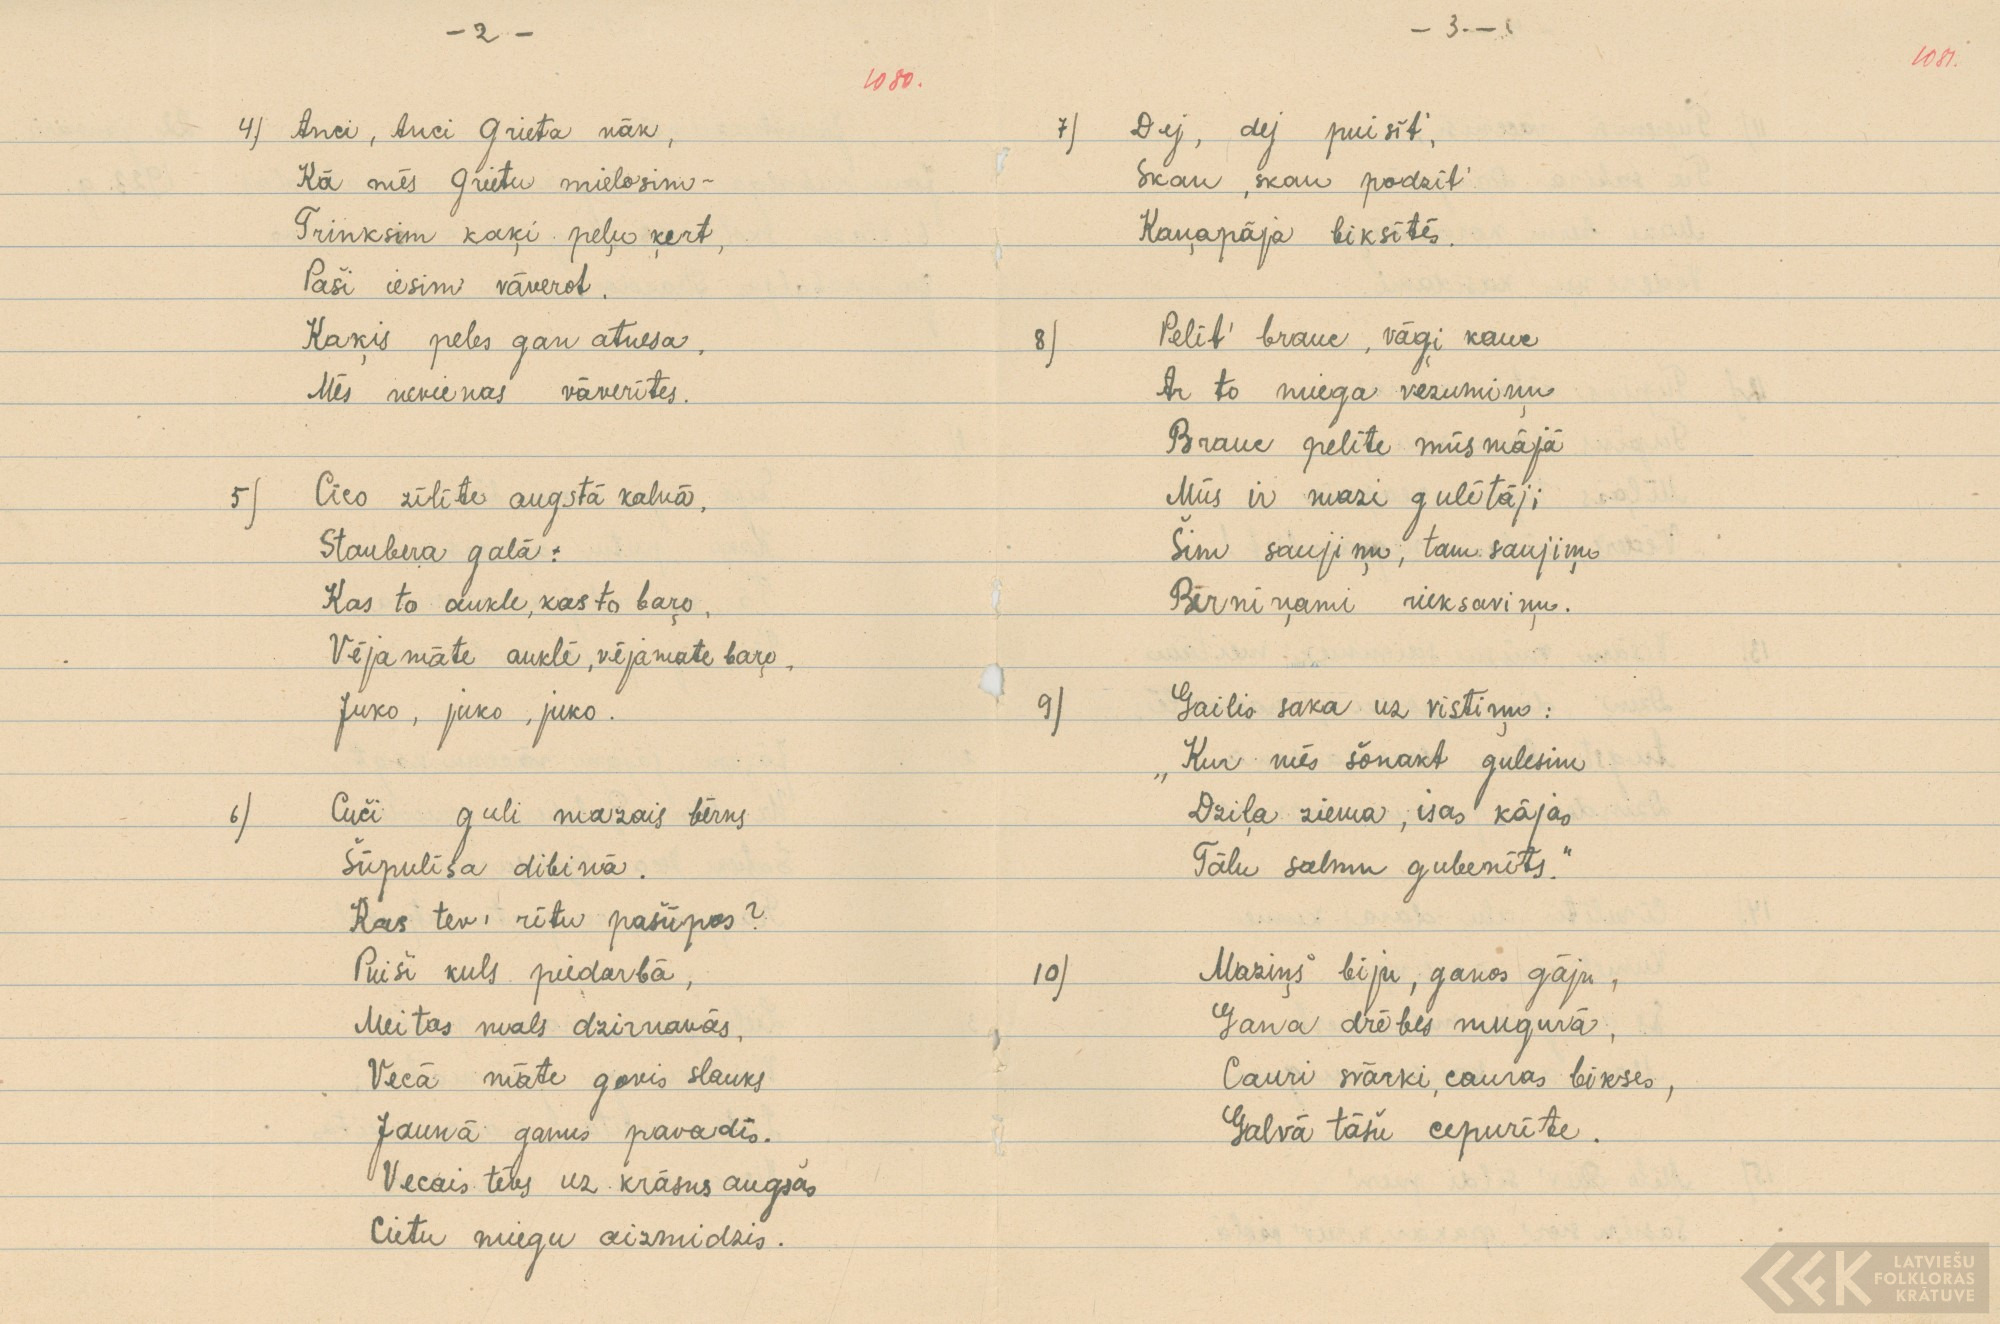 - 2 -
1080.
4) Anci, Anci Grieta nāk,
Kā mēs Grietu mielosim -
Trinksim kaķi peļu ķert,
Paši iesim vāverot.
Kaķis peles gan atnesa,
Mēs nevienas vāverītes.
5) Cīco zīlīte augstā kalnā,
Staubera galā:
Kas to aukle, kas to baŗo,
Vējamāte auklē, vējamate baŗo,
Juko, juko, juko.
6) Cuči guli mazais bērns
Šūpulīša dibinā.
Kas tevi rītu pašūpos?
Puiši kuls piedarbā,
Meitas mals dzirnavās,
Vecā māte govis slauks
Jaunā ganus pavadīs.
Vecais tēvs uz krāsns augšās
Cietu miegu aizmidzis.
- 3. -
1081.
7) Dej, dej puisīt',
Skan, skan podzīt'
Kaņapāja biksītēs.
8) Pelīt' brauc, vāģi kauc
Ar to miega vezumiņu
Brauc pelīte mūs mājā
Mūs ir mazi gulētāji
Šim saujiņu, tam saujiņu
Bērniņami rieksaviņu.
9) Gailis saka uz vistiņu:
„Kur mēs šonakt gulesim
Dziļa ziema, isas kājas
Tālu salmu gubenīts."
10) Maziņš biju, ganos gāju,
Gana drēbes mugurā,
Cauri svārki, cauras bikses,
Galvā tāšu cepurīte.
LATVIEŠU
FOLKLORAS
KRĀTUVE